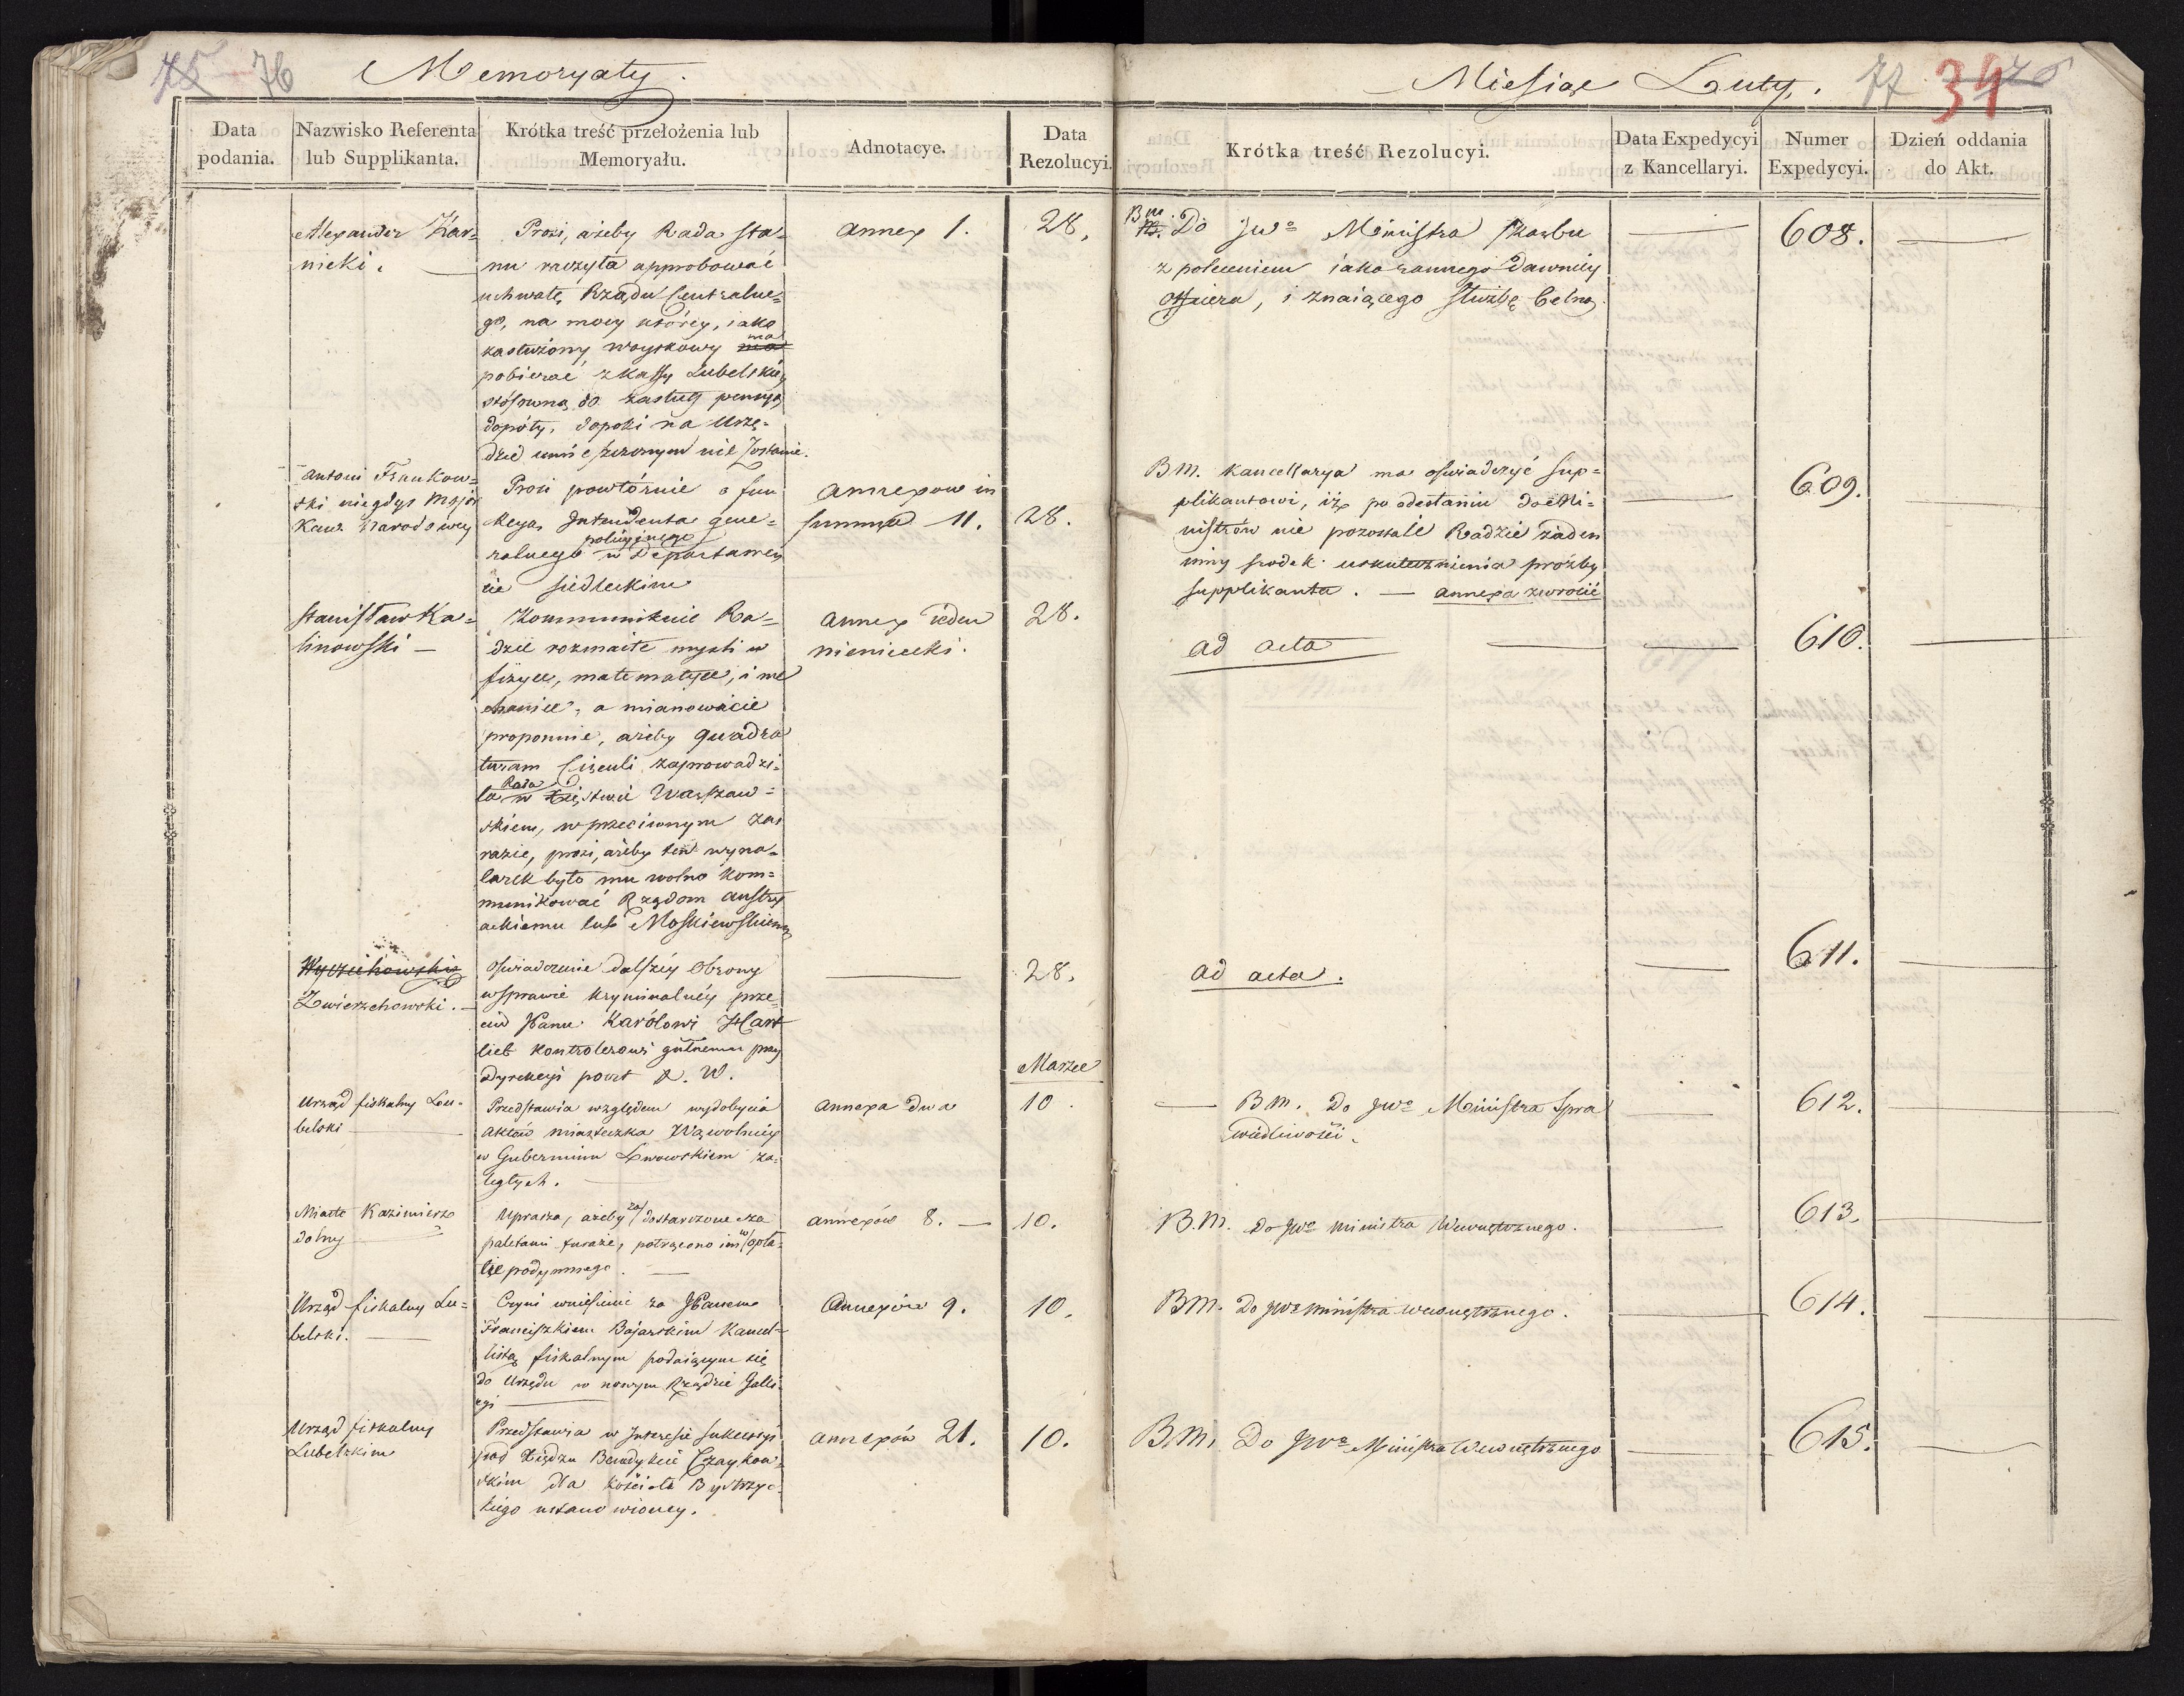 75 76 Memoryały.
Miesiąc Luty. 77 34 76
Data podania.
Nazwisko Referenta lub Supplikanta.
Krótka treść przełożenia lub Memoryału.
Adnotacye.
Data Rezolucyi.
Krótka treść Rezolucyi.
Data Expedycyi z Kancellaryi.
Numer Expedycyi.
Dzień oddania do Akt.
Alexander Żar=
nicki.
Prosi, ażeby Rada Sta=
nu raczyła approbować
uchwałę Rządu Centralne=
go, na mocy którey, iako
zasłużony woyskowy ma
pobierać z Kassy Lubelskiey
stósowną do zasług pensyą,
dopóty, dopoki na Urzę=
dzie umieszczonym nie zostanie.
annex 1.
28.
BM. Do JWo Ministra Skarbu
z poleceniem iako rannego dawniey
Officera, i znaiącego służbę Celną.
608.
Antoni Frankow=
ski niegdyś Major
Kaw. Narodowey
Prosi powtórnie o fun
kcyą Intendenta gene=
policyinego
ralnego w Departamen
cie Siedleckim
annexow in
summa 11.
28.
BM. Kancellarya ma oświadczyć Sup=
plikantowi, iż po odesłaniu do Mi=
nistrów nie pozostało Radzie żaden
inny srodek uskutecznienia prośby
supplikanta. — annexa zwrocić
609.
Stanisław Ka=
linowski —
Kommunikuie Ra=
dzie rozmaite myśli w
fizyce, matematyce, i me
chanice, a mianowicie
proponuie, ażeby quadra
turam Circuli zaprowadzi=
Rada
ła w Xięstwie Warszaw=
skiem, w przeciwnym zaś
razie, prosi, ażeby ten wyna=
lazek było mu wolno kom=
munikować Rządom Austry
ackiemu lub Moskiewskiemu
annex ieden
niemiecki.
28.
ad acta
610.
Wyczechowski
Zwierzchowski.
Oświadczenie dalszey Obrony
w sprawie kryminalnéy prze=
ciw JPanu Karólowi Hart
lieb Kontrolerowi głównemu przy
Dyrekcyi poczt X. W.
28.
ad acta.
611.
Marzec
Urząd fiskalny Lu=
belski
Przedstawia względem wydobycia
aktów miasteczka Wąwolnicy
w Gubernium Lwowskiem za=
ległych.
annexa dwa
10.
BM. Do JWo Ministra Spra
wiedliwości.
612.
Miasto Kazimierz
dolny
Uprasza, ażeby za dostarczone za
paletami furaże, potrącono im w opła=
cie podymnego.
annexów 8. —
10.
B.M. do JWo Ministra Wewnętrznego.
613.
Urząd fiskalny Lu=
belski.
Czyni wniesienie za JPanem
Franciszkiem Bojarskim Kancel=
listą fiskalnym podaiącym się
do Urzędu w nowym Rządzie Galli
cyi
Annexów 9.
10.
BM. Do JWo Ministra Wewnętrznego.
614.
Urząd fiskalny
Lubelskim
Przedstawia w Interesie Sukcessyi
pod Xiędzu Benedykcie Czaykow
skim dla kościoła Bystrzyc=
kiego ustanowioney.
annexów 21.
10.
B.M. Do JWo Ministra Wewnętrznego
615.